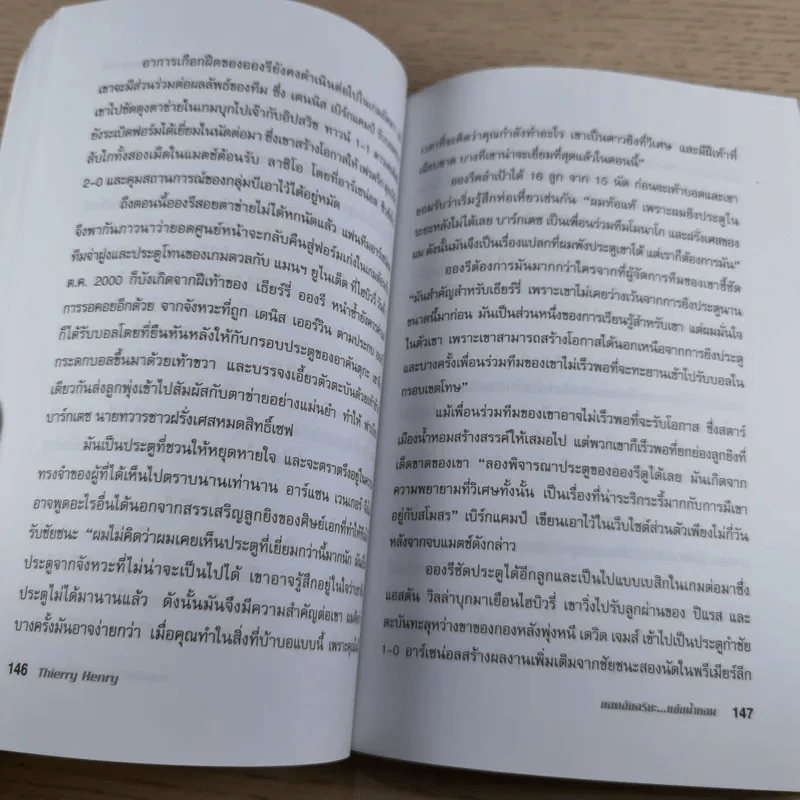 อาการเกือกฝืดของอองรียังคงดำเนินต่อไปในเกม
เขาจะมีส่วนร่วมต่อผลลัพธ์ของทีม ซึ่ง เดนนิส เบิร์กแคมป์
เขาไปซัดตุงตาข่ายในเกมบุกไปเจ๊ากับอิปสวิช ทาวน์ 1-1
ยังระเบิดฟอร์มได้เยี่ยมในนัดต่อมา ซึ่งเขาสร้างโอกาสให้
ลับไกทั้งสองเม็ดในแมตช์ต้อนรับ ลาซิโอ โดยที่อาร์เซน่อล
2-0 และคุมสถานการณ์ของกลุ่มบีเอาไว้ได้อยู่หมัด
ถึงตอนนี้อองรีสอยตาข่ายไม่ได้หกนัดแล้ว แฟนทีมอาร์เซน่อล
จึงพากันภาวนาว่ายอดศูนย์หน้าจะกลับคืนสู่ฟอร์มเก่งในเกม
ทีมจ่าฝูงและประตูโทนของเกมดวลกับ แมนฯ ยูไนเต็ด ที่ไฮบิวรี่
ต.ค. 2000 ก็บังเกิดจากฝีเท้าของ เธียร์รี่ อองรี หน้าซ้ำ
การรอคอยอีกด้วย จากจังหวะที่ถูก เดนิส เออร์วิน ตามประกบ
ก็ได้รับบอลโดยที่ยืนหันหลังให้กับกรอบประตูของอาคันตุกะ
กระดกบอลขึ้นมาด้วยเท้าขวา และบรรจงเอี้ยวตัวตะบันด้วย
เดียวกันส่งลูกพุ่งเข้าไปสัมผัสกับตาข่ายอย่างแม่นยำ ทำให้
บาร์กเตซ นายทวารชาวฝรั่งเศสหมดสิทธิ์เซฟ
มันเป็นประตูที่ชวนให้หยุดหายใจ และจะตราตรึงอยู่ใน
ทรงจำของผู้ที่ได้เห็นไปตราบนานเท่านาน อาร์แซน เวนเกอร์
อาจพูดอะไรอื่นได้นอกจากสรรเสริญลูกยิงของศิษย์เอกที่ทำให้
รับชัยชนะ “ผมไม่คิดว่าผมเคยเห็นประตูที่เยี่ยมกว่านี้มากนัก
ประตูจากจังหวะที่ไม่น่าจะเป็นไปได้ เขาอาจรู้สึกอยู่ในใจว่า
ประตูไม่ได้มานานแล้ว ดังนั้นมันจึงมีความสำคัญต่อเขา
บางครั้งมันอาจง่ายกว่า เมื่อคุณทำในสิ่งที่บ้าบอแบบนี้
146 Thierry Henry
เวลาที่จะคิดว่าคุณกำลังทำอะไร เขาเป็นดาวยิงที่วิเศษ และมีฝีเท้าที่
เฉียบขาด บางทีเขาน่าจะเยี่ยมที่สุดแล้วในตอนนี้”
อองรีคลำเป้าได้ 16 ลูก จาก 15 นัด ก่อนจะเท้าบอดและเขา
ยอมรับว่าเริ่มรู้สึกท่อเหี่ยวเช่นกัน “ผมท้อแท้ เพราะผมยิงประตูใน
ระยะหลังไม่ได้เลย บาร์กเตซ เป็นเพื่อนร่วมทีมโมนาโก และฝรั่งเศสของ
ผม ดังนั้นมันจึงเป็นเรื่องแปลกที่ผมพังประตูเขาได้ แต่เราก็ต้องการมัน”
อองรีต้องการมันมากกว่าใครจากที่ผู้จัดการทีมของเขาชี้ชัด
“มันสำคัญสำหรับเธียร์รี่ เพราะเขาไม่เคยว่างเว้นจากการยิงประตูนาน
ขนาดนี้มาก่อน มันเป็นส่วนหนึ่งของการเรียนรู้สำหรับเขา แต่ผมมั่นใจ
ในตัวเขา เพราะเขาสามารถสร้างโอกาสได้นอกเหนือจากการยิงประตู
และบางครั้งเพื่อนร่วมทีมของเขาไม่เร็วพอที่จะทะยานเข้าไปรับบอลใน
กรอบเขตโทษ”
แม้เพื่อนร่วมทีมของเขาอาจไม่เร็วพอที่จะรับโอกาส ซึ่งสตาร์
เมืองน้ำหอมสร้างสรรค์ให้เสมอไป แต่พวกเขาก็เร็วพอที่ยกย่องลูกยิงที่
เด็ดขาดของเขา “ลองพิจารณาประตูของอองรีดูได้เลย มันเกิดจาก
ความพยายามที่วิเศษทั้งนั้น เป็นเรื่องที่น่าระริกระรี้มากกับการมีเขา
อยู่กับสโมสร” เบิร์กแคมป์ เขียนเอาไว้ในเว็บไซต์ส่วนตัวเพียงไม่กี่วัน
หลังจากจบแมตช์ดังกล่าว
อองรีซัดประตูได้อีกลูกและเป็นไปแบบเบสิกในเกมต่อมาซึ่ง
แอสตัน วิลล่าบุกมาเยือนไฮบิวรี่ เขาวิ่งไปรับลูกผ่านของ ปิแรส และ
ตะบันทะลุหว่างขาของกองหลังพุ่งหนี เดวิด เจมส์ เข้าไปเป็นประตูกำชัย
1-0 อาร์เซน่อลสร้างผลงานเพิ่มเติมจากชัยชนะสองนัดในพรีเมียร์ลีก
ยอดอัจฉริยะ...แข้งน้ำหอม 147